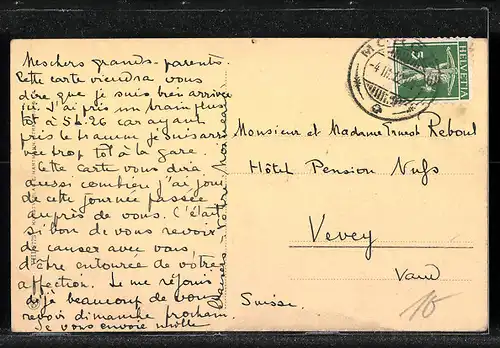 Mes chers grands-parents.
Cette carte viendra vous
dire que je suis bien arrivée
ici. J'ai pris un train plus
tôt à 5h.26 car ayant
pris le tramm je suis arrivée
trop tôt à la gare.
Cette carte vous dira
aussi combien j'ai joui
de cette journée passée
auprès de vous. C'était
si bon de vous revoir
de causer avec vous,
d'être entourée de votre
affection. Je me réjouis
déjà beaucoup de vous
revoir dimanche prochain.
Je vous envoie mille
baisers
HELVETIA
5
Monsieur et Madame Ernest Reboul
Hôtel Pension Nuss
Vevey
Vaud
Suisse.
10